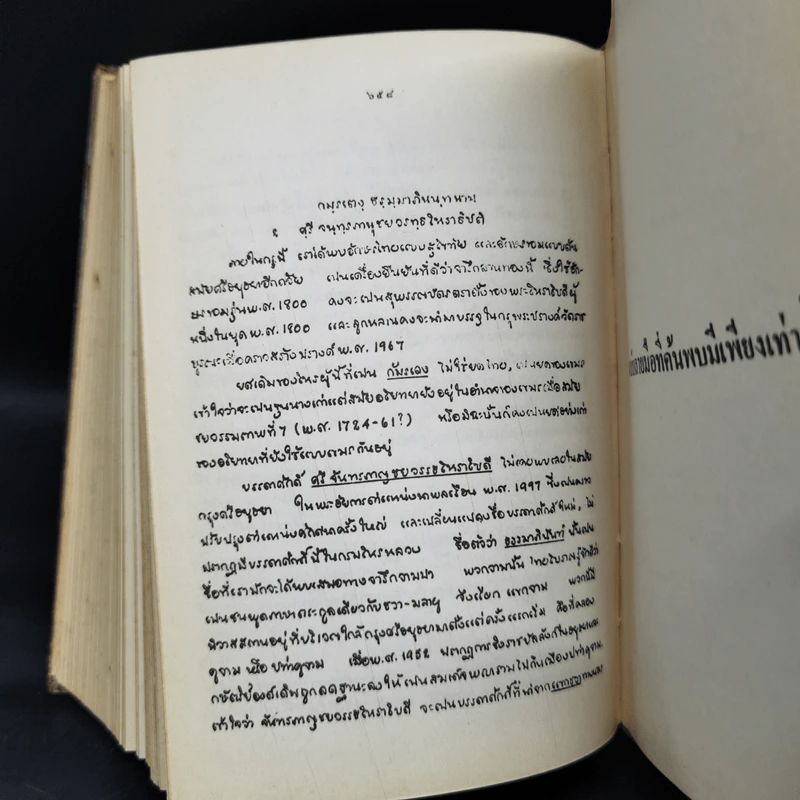 ๖๕๔
กมฺรเตงฺ ธรฺมฺมาภินนฺท นาม
ศฺรี จนฺทฺรภานุชยวรทฺธ โหราธิบดี
ภายในกรุนี้ เราได้พบอักษรไทยแบบสุโขทัย และอักษรขอมแบบต้น
สมัยศรีอยุธยาอีกด้วย เป็นเครื่องยืนยันที่ดีว่าจารึกลานทองนี้ ซึ่งใช้อัก-
ษรขอมรุ่น พ.ศ. 1800 คงจะเป็นสุพรรณบัตรตราตั้งของพระโหราธิบดีผู้
หนึ่งในยุค พ.ศ. 1800 และลูกหลานคงจะนำมาบรรจุในกรุพระปรางค์วัดราช
บูรณะเมื่อคราวสร้างปรางค์ พ.ศ. 1967
ยศเดิมของโหรผู้นี้ที่เป็น กัมรเตง ไม่ใช่ยศไทย, เป็นยศของเขมร
เข้าใจว่าจะเป็นขุนนางเก่าแต่สมัยอโยธยายังอยู่ในอำนาจของเขมรเมื่อสมัย
ชยวรรมเทพที่ 7 (พ.ศ. 1724-61?) หรือมิฉะนั้นก็คงเป็นยศอย่างเก่า
ของอโยธยาที่ยังใช้แบบเขมรกันอยู่
บรรดาศักดิ์ ศรี จันทรภาณุชยวรรธโหราธิบดี ไม่เคยพบเลยในสมัย
กรุงศรีอยุธยา ในพระอัยการตำแหน่งนาพลเรือน พ.ศ. 1997 ซึ่งเป็นการ
ปรับปรุงตำแหน่งศักดินาครั้งใหญ่ และเปลี่ยนแปลงชื่อบรรดาศักดิ์ใหม่, ไม่
ปรากฏมีบรรดาศักดิ์นี้ในกรมโหรหลวง ชื่อตัวว่า ธรรมาภินันท์ นั้นเป็น
ชื่อที่เรามักจะได้พบเสมอทางจารึกจามปา พวกจามนั้น ไทยโบราณรู้จักดีว่า
เป็นชนพูดภาษาตระกูลเดียวกับชวา-มลายู ซึ่งเรียก แขกจาม พวกนี้มี
นิวาสสถานอยู่ที่บริเวณใกล้กรุงศรีอยุธยามาตั้งแต่ครั้งแรกเริ่ม คือที่คลอง
คูจาม หรือ ปท่าคูจาม เมื่อ พ.ศ. 1952 ปรากฏการชิงราชบัลลังก์ในอยุธยาและ
กษัตริย์องค์เดิมถูกลดฐานะลงให้เป็นสมเด็จพญารามไปกินเมืองปท่าคูจาม
เข้าใจว่า จันทรภาณุชยวรรธโหราธิบดี จะเป็นบรรดาศักดิ์ที่
ที่ค้นพบมีเพียงเท่า